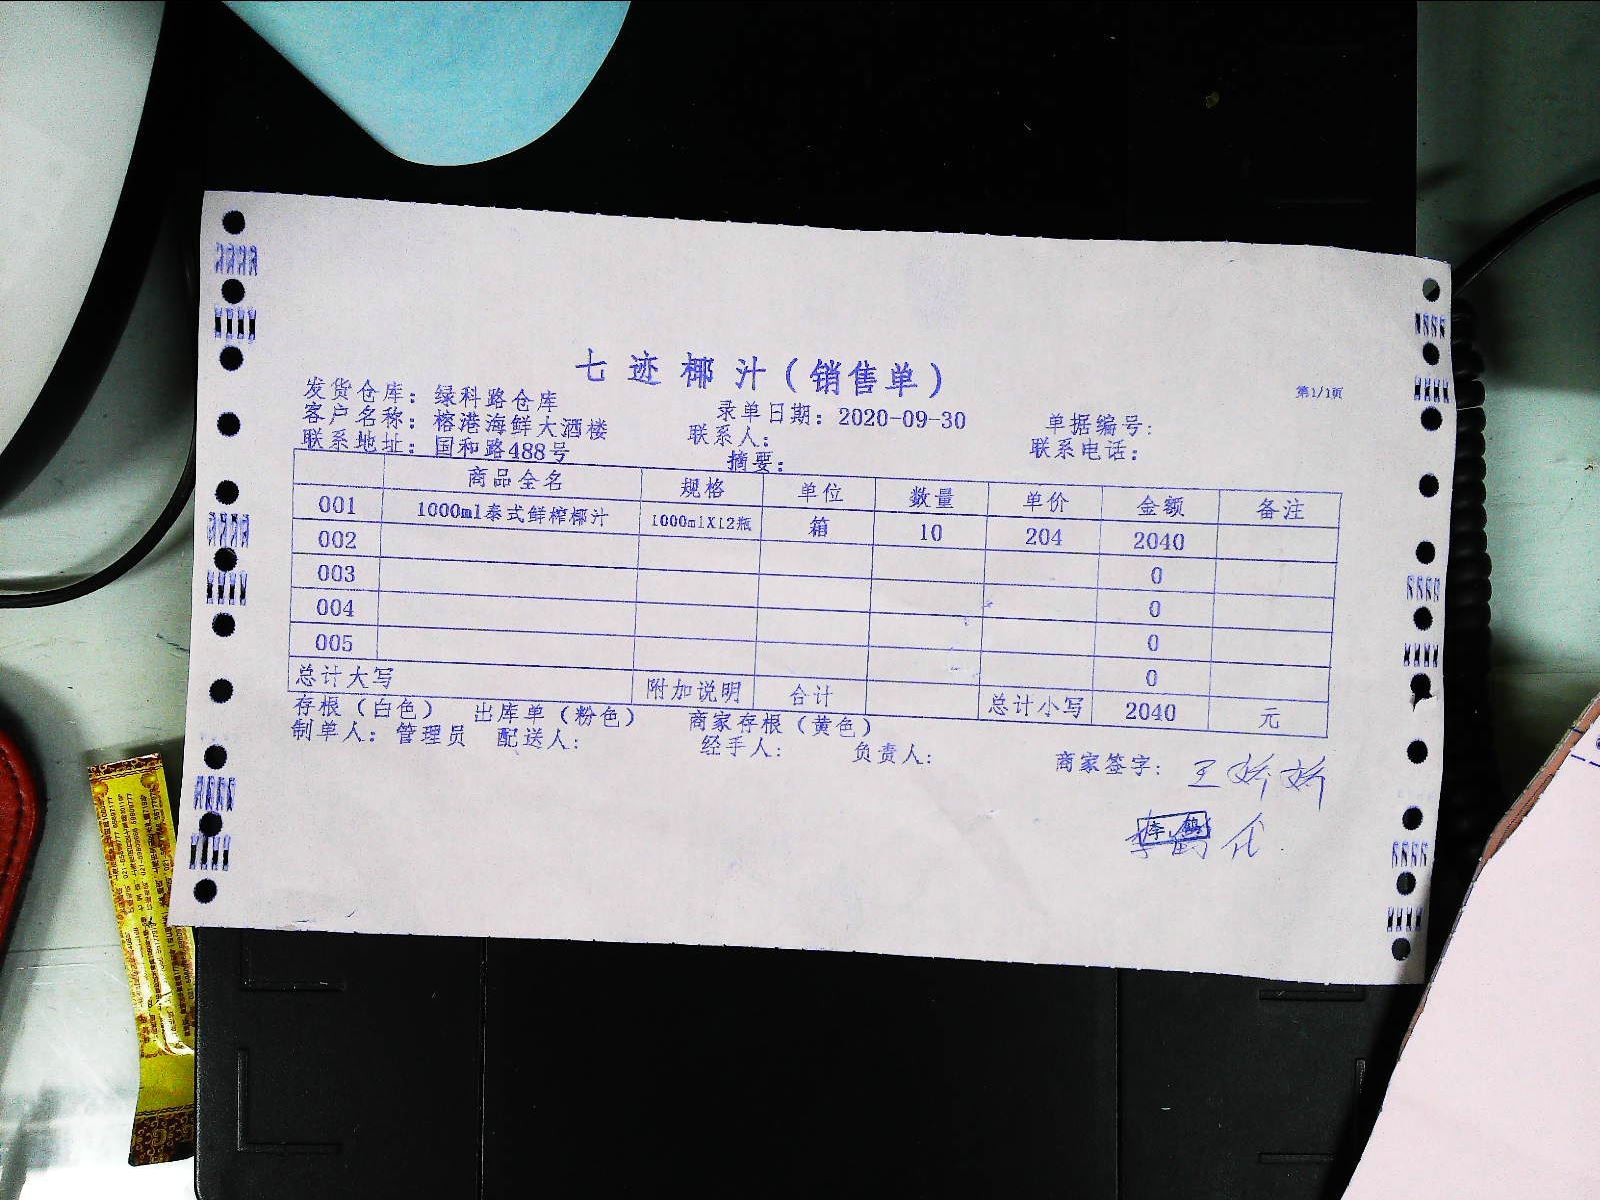 七迹椰汁(销售单)
第1/1页
发货仓库:绿科路仓库 录单日期:2020-09-30 单据编号:
客户名称:榕港海鲜大酒楼 联系人: 联系电话:
联系地址:国和路488号 摘要:
商品全名 规格 单位 数量 单价 金额 备注
001 1000ml泰式鲜榨椰汁 1000mlX12瓶 箱 10 204 2040
002 0
003 0
004 0
005 0
总计大写 附加说明 合计 总计小写 2040 元
存根(白色) 出库单(粉色) 商家存根(黄色)
制单人:管理员 配送人: 经手人: 负责人: 商家签字: 王娇娇